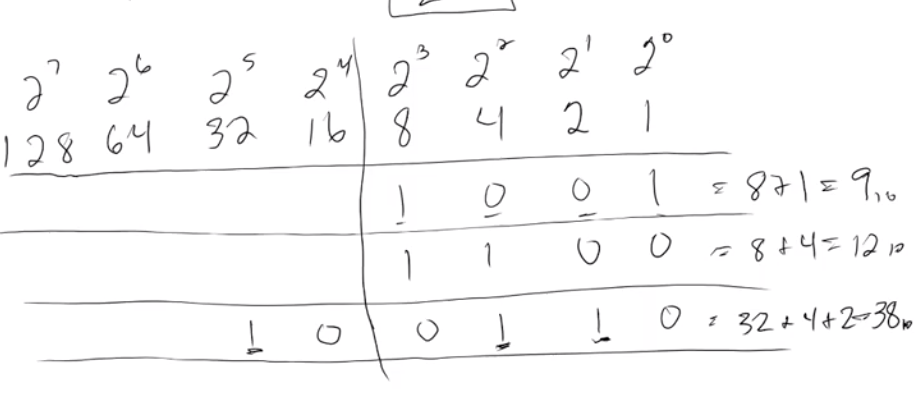 2⁷ 2⁶ 2⁵ 2⁴ 2³ 2² 2¹ 2⁰
128 64 32 16 8 4 2 1
1 0 0 1 = 8+1 = 9₁₀
1 1 0 0 = 8+4 = 12₁₀
1 0 0 1 1 0 = 32+4+2=38₁₀